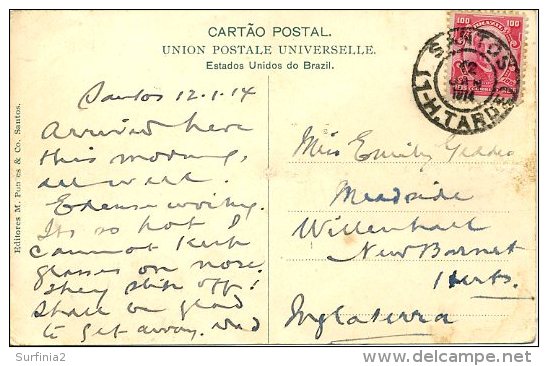 CARTÃO POSTAL.
UNION POSTALE UNIVERSELLE.
Estados Unidos do Brazil.
100 BRAZIL 100
SANTOS
12
JAN
1914
11-H.TARDE
Santos 12.1.14
Arrived here
this morning,
all well.
Excuse writing.
Its so hot I
cannot keep
glasses on nose.
They slip off!
Shall be glad
to get away.
Miss Emily
Meadside
Willenhall
New Barnet
Herts.
Inglaterra
Editores M. & Co. Santos.
Surfinia2
delcampe.net